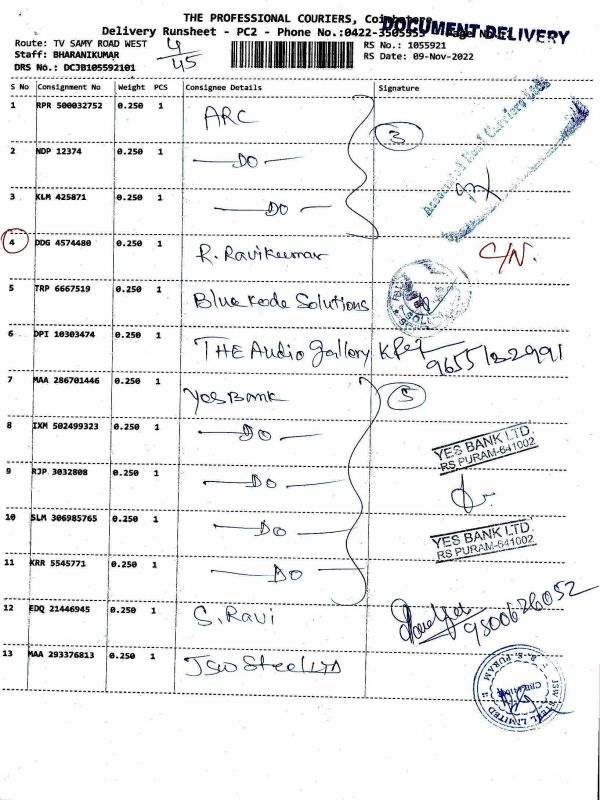 THE PROFESSIONAL COURIERS, Coimbatore
DOCUMENT DELIVERY
Delivery Runsheet - PC2 - Phone No.:0422-3505955 Page No
Route: TV SAMY ROAD WEST
RS No.: 1055921
Staff: BHARANIKUMAR
RS Date: 09-Nov-2022
DRS No.: DCJB105592101
4/45
S No Consignment No Weight PCS Consignee Details Signature
1 RPR 500032752 0.250 1 ARC
3
Associated Road Carriers Ltd
2 NDP 12374 0.250 1 DO
3 KLM 425871 0.250 1 DO
4 DDG 4574480 0.250 1 R. Ravikumar C/N.
5 TRP 6667519 0.250 1 Bluekode Solutions
6 DPI 10303474 0.250 1 THE Audio gallery
7 MAA 286701446 0.250 1 Yes Bank 5
8 IXM 502499323 0.250 1 DO
YES BANK LTD.
RS PURAM-641002
9 RJP 3032808 0.250 1 DO
10 SLM 306985765 0.250 1 DO
YES BANK LTD.
RS PURAM-641002
11 KRR 5545771 0.250 1 DO
12 EDQ 21446945 0.250 1 S. Ravi 9500626052
13 MAA 293376813 0.250 1 JSW Steel LTD
JSW STEEL LIMITED
R. S. PURAM